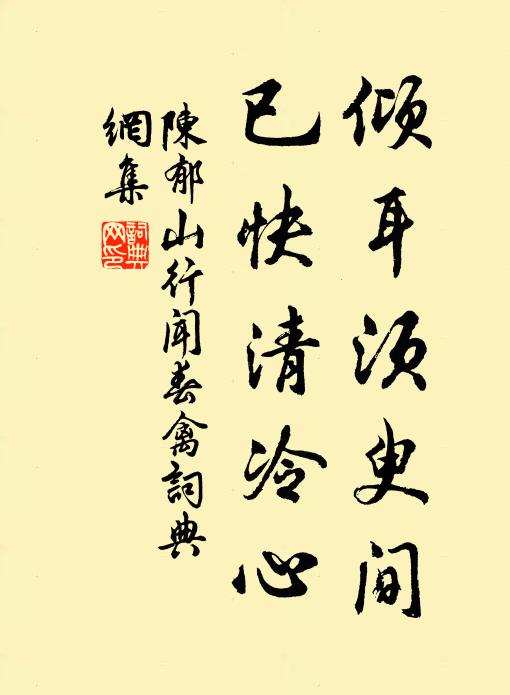 傾耳須臾间
已快清冷心
陳郁山行闻春禽詞典
網集
詞典
网印